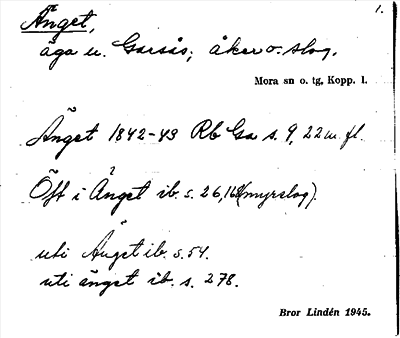 Änget,
1.
äga u. Garsås; åker o. slog.
Mora sn o. tg, Kopp. l.
Änget 1842-43 Rb Ga s. 9, 22 m. fl.
Öft i Änget ib. s. 26, 168 (myrslog).
uti Änget ib. s. 54.
uti änget ib. s. 278.
Bror Lindén 1945.